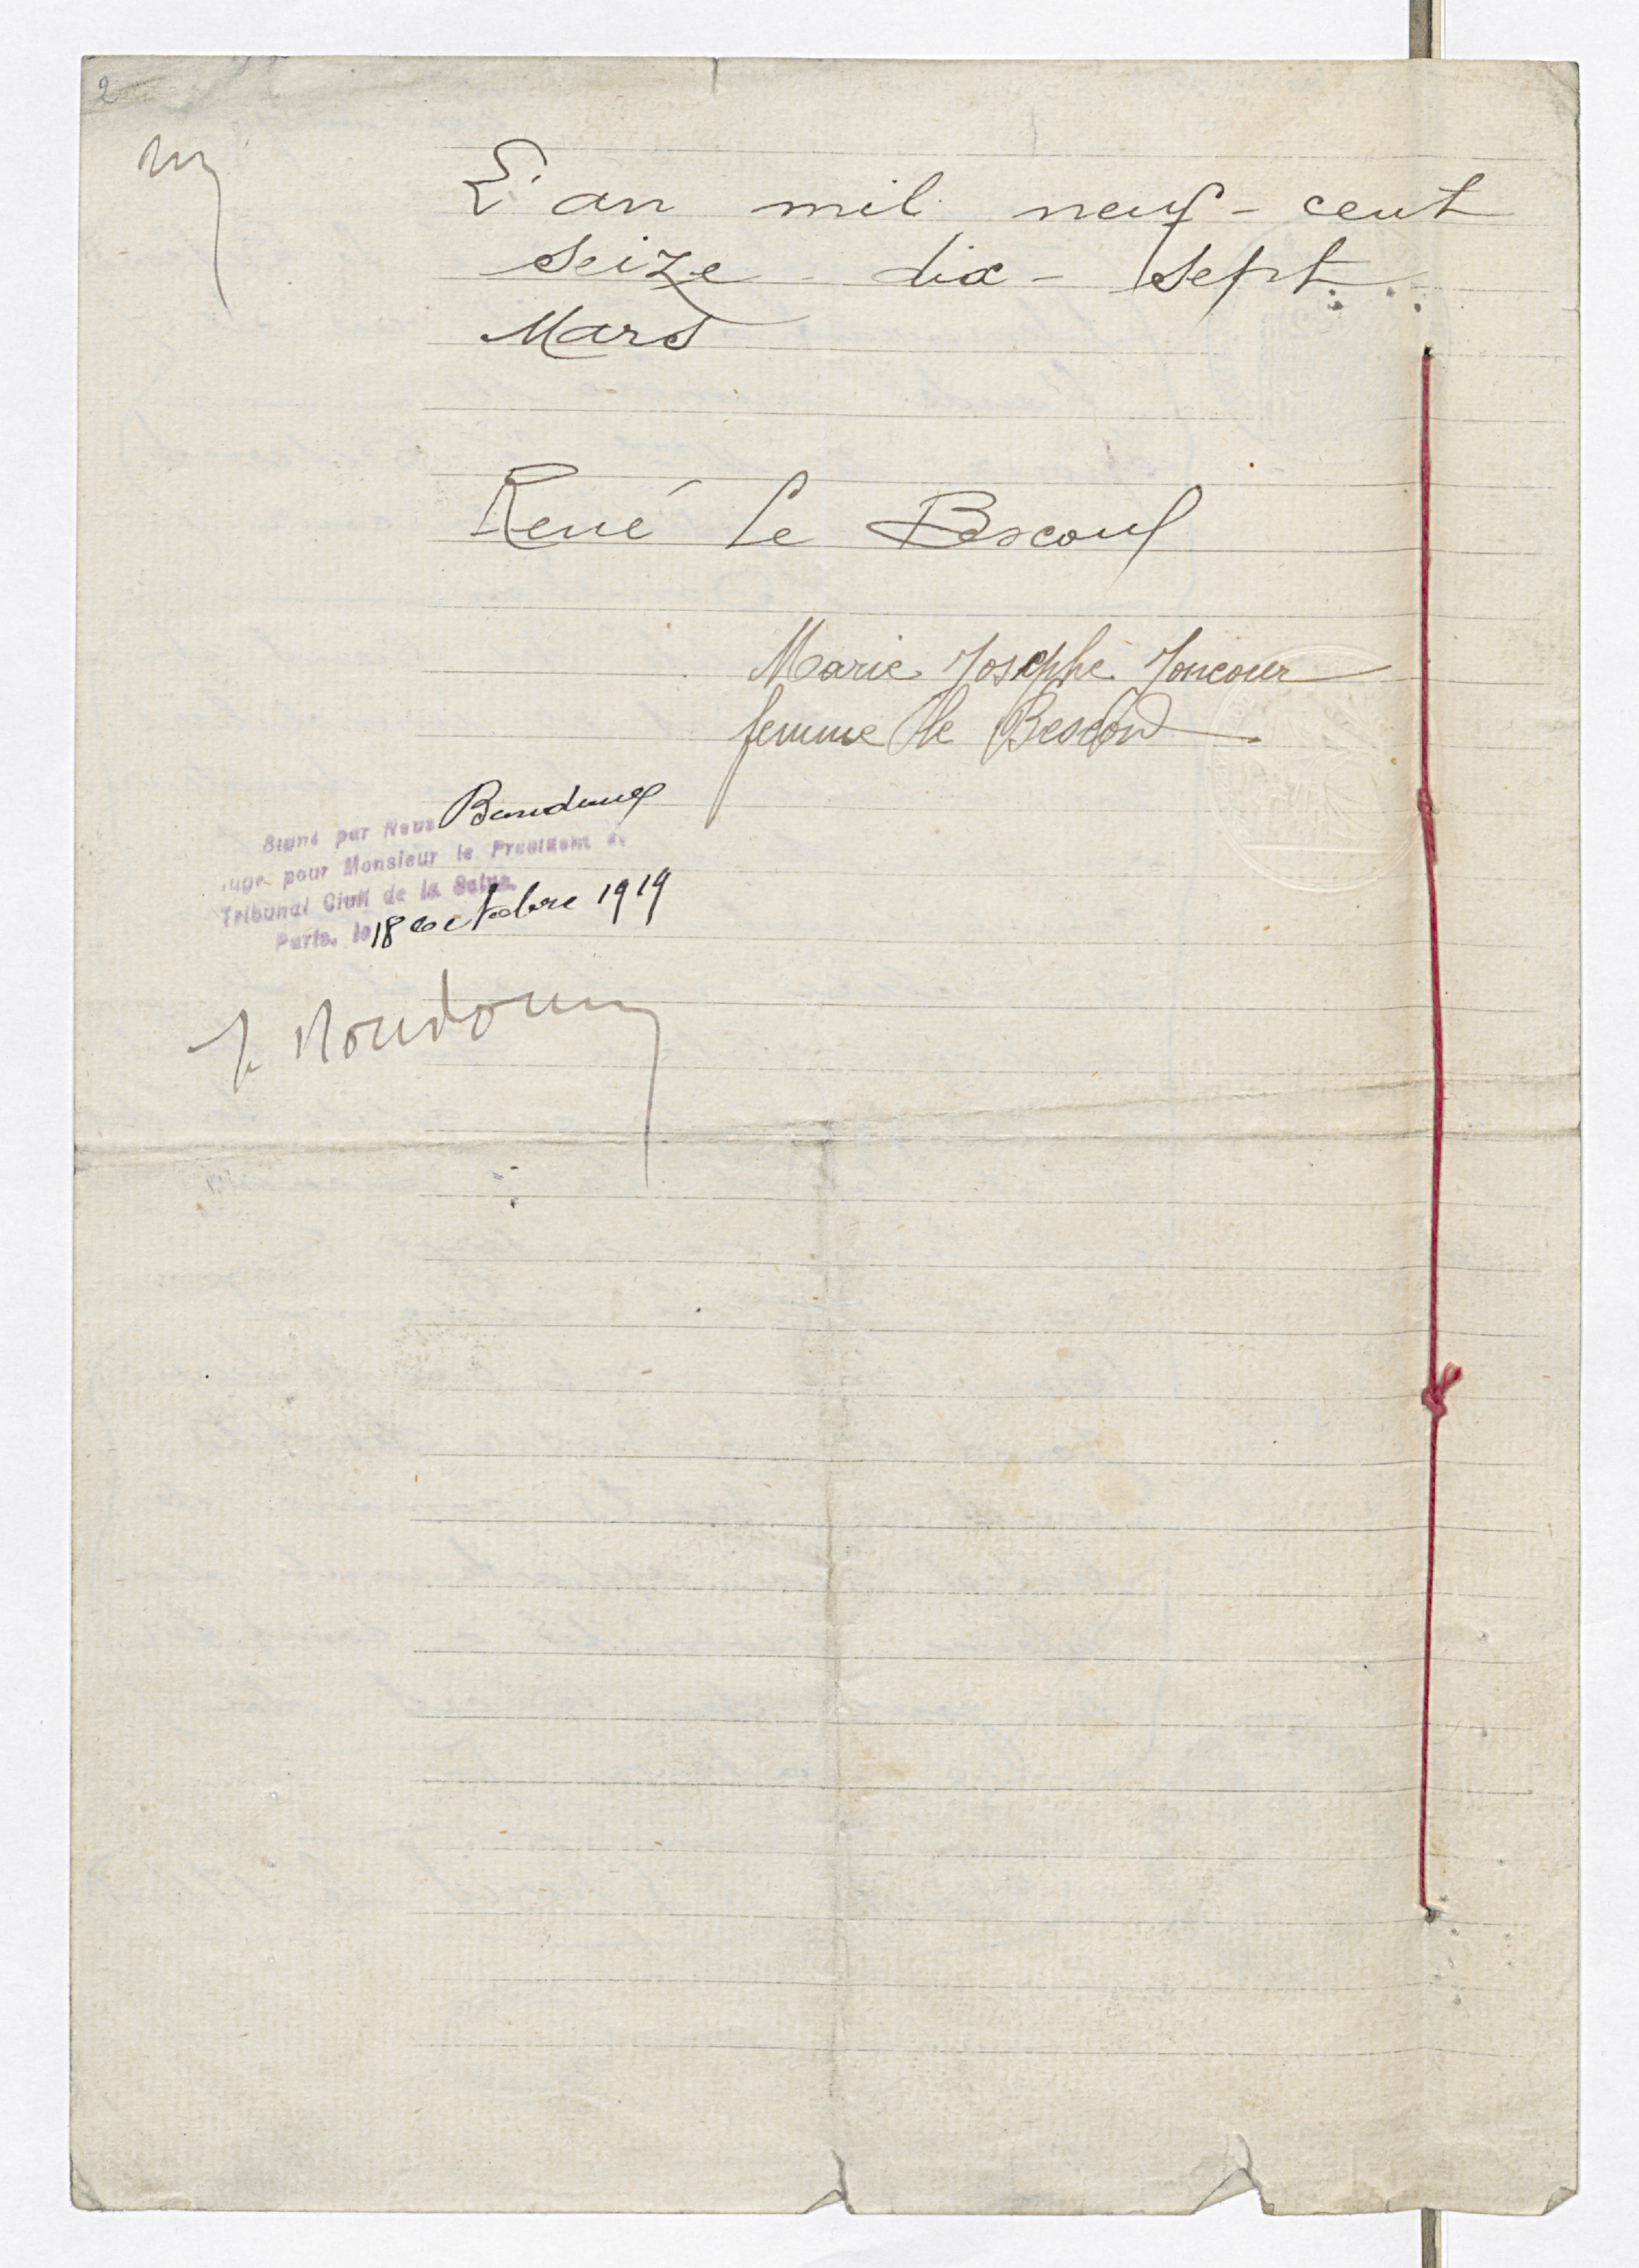 2
L'an mil neuf-cent
seize dix-sept
Mars
René Le Bescoul
Marie Josephe Joncour
femme Le Bescond
Signé par Nous
Juge pour Monsieur le President du
Tribunal Civil de la Seine
Paris, le 18 octobre 1919